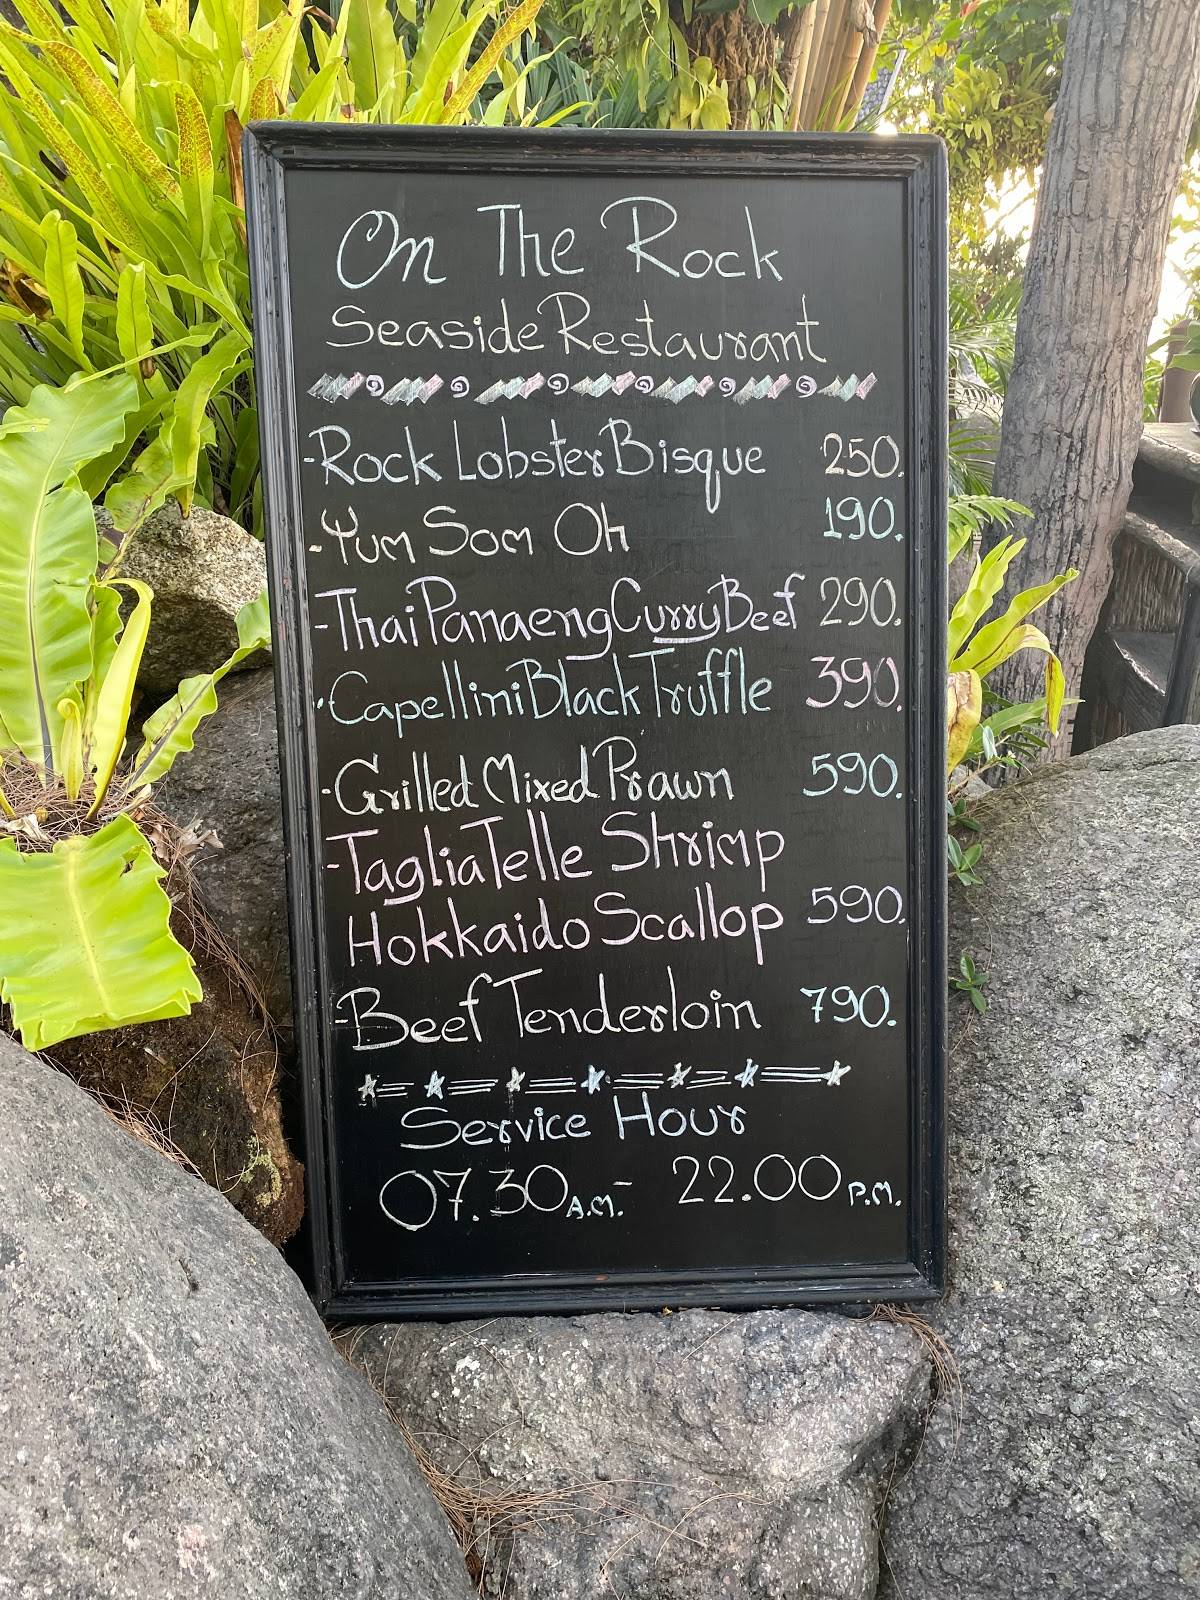 On The Rock
Seaside Restaurant
-Rock Lobster Bisque 250.
-Yum Som Oh 190.
-Thai Panaeng Curry Beef 290.
-Capellini Black Truffle 390.
-Grilled Mixed Prawn 590.
-TagliaTelle Shrimp
Hokkaido Scallop 590.
-Beef Tenderloin 790.
Service Hour
07.30 A.M.- 22.00 P.M.